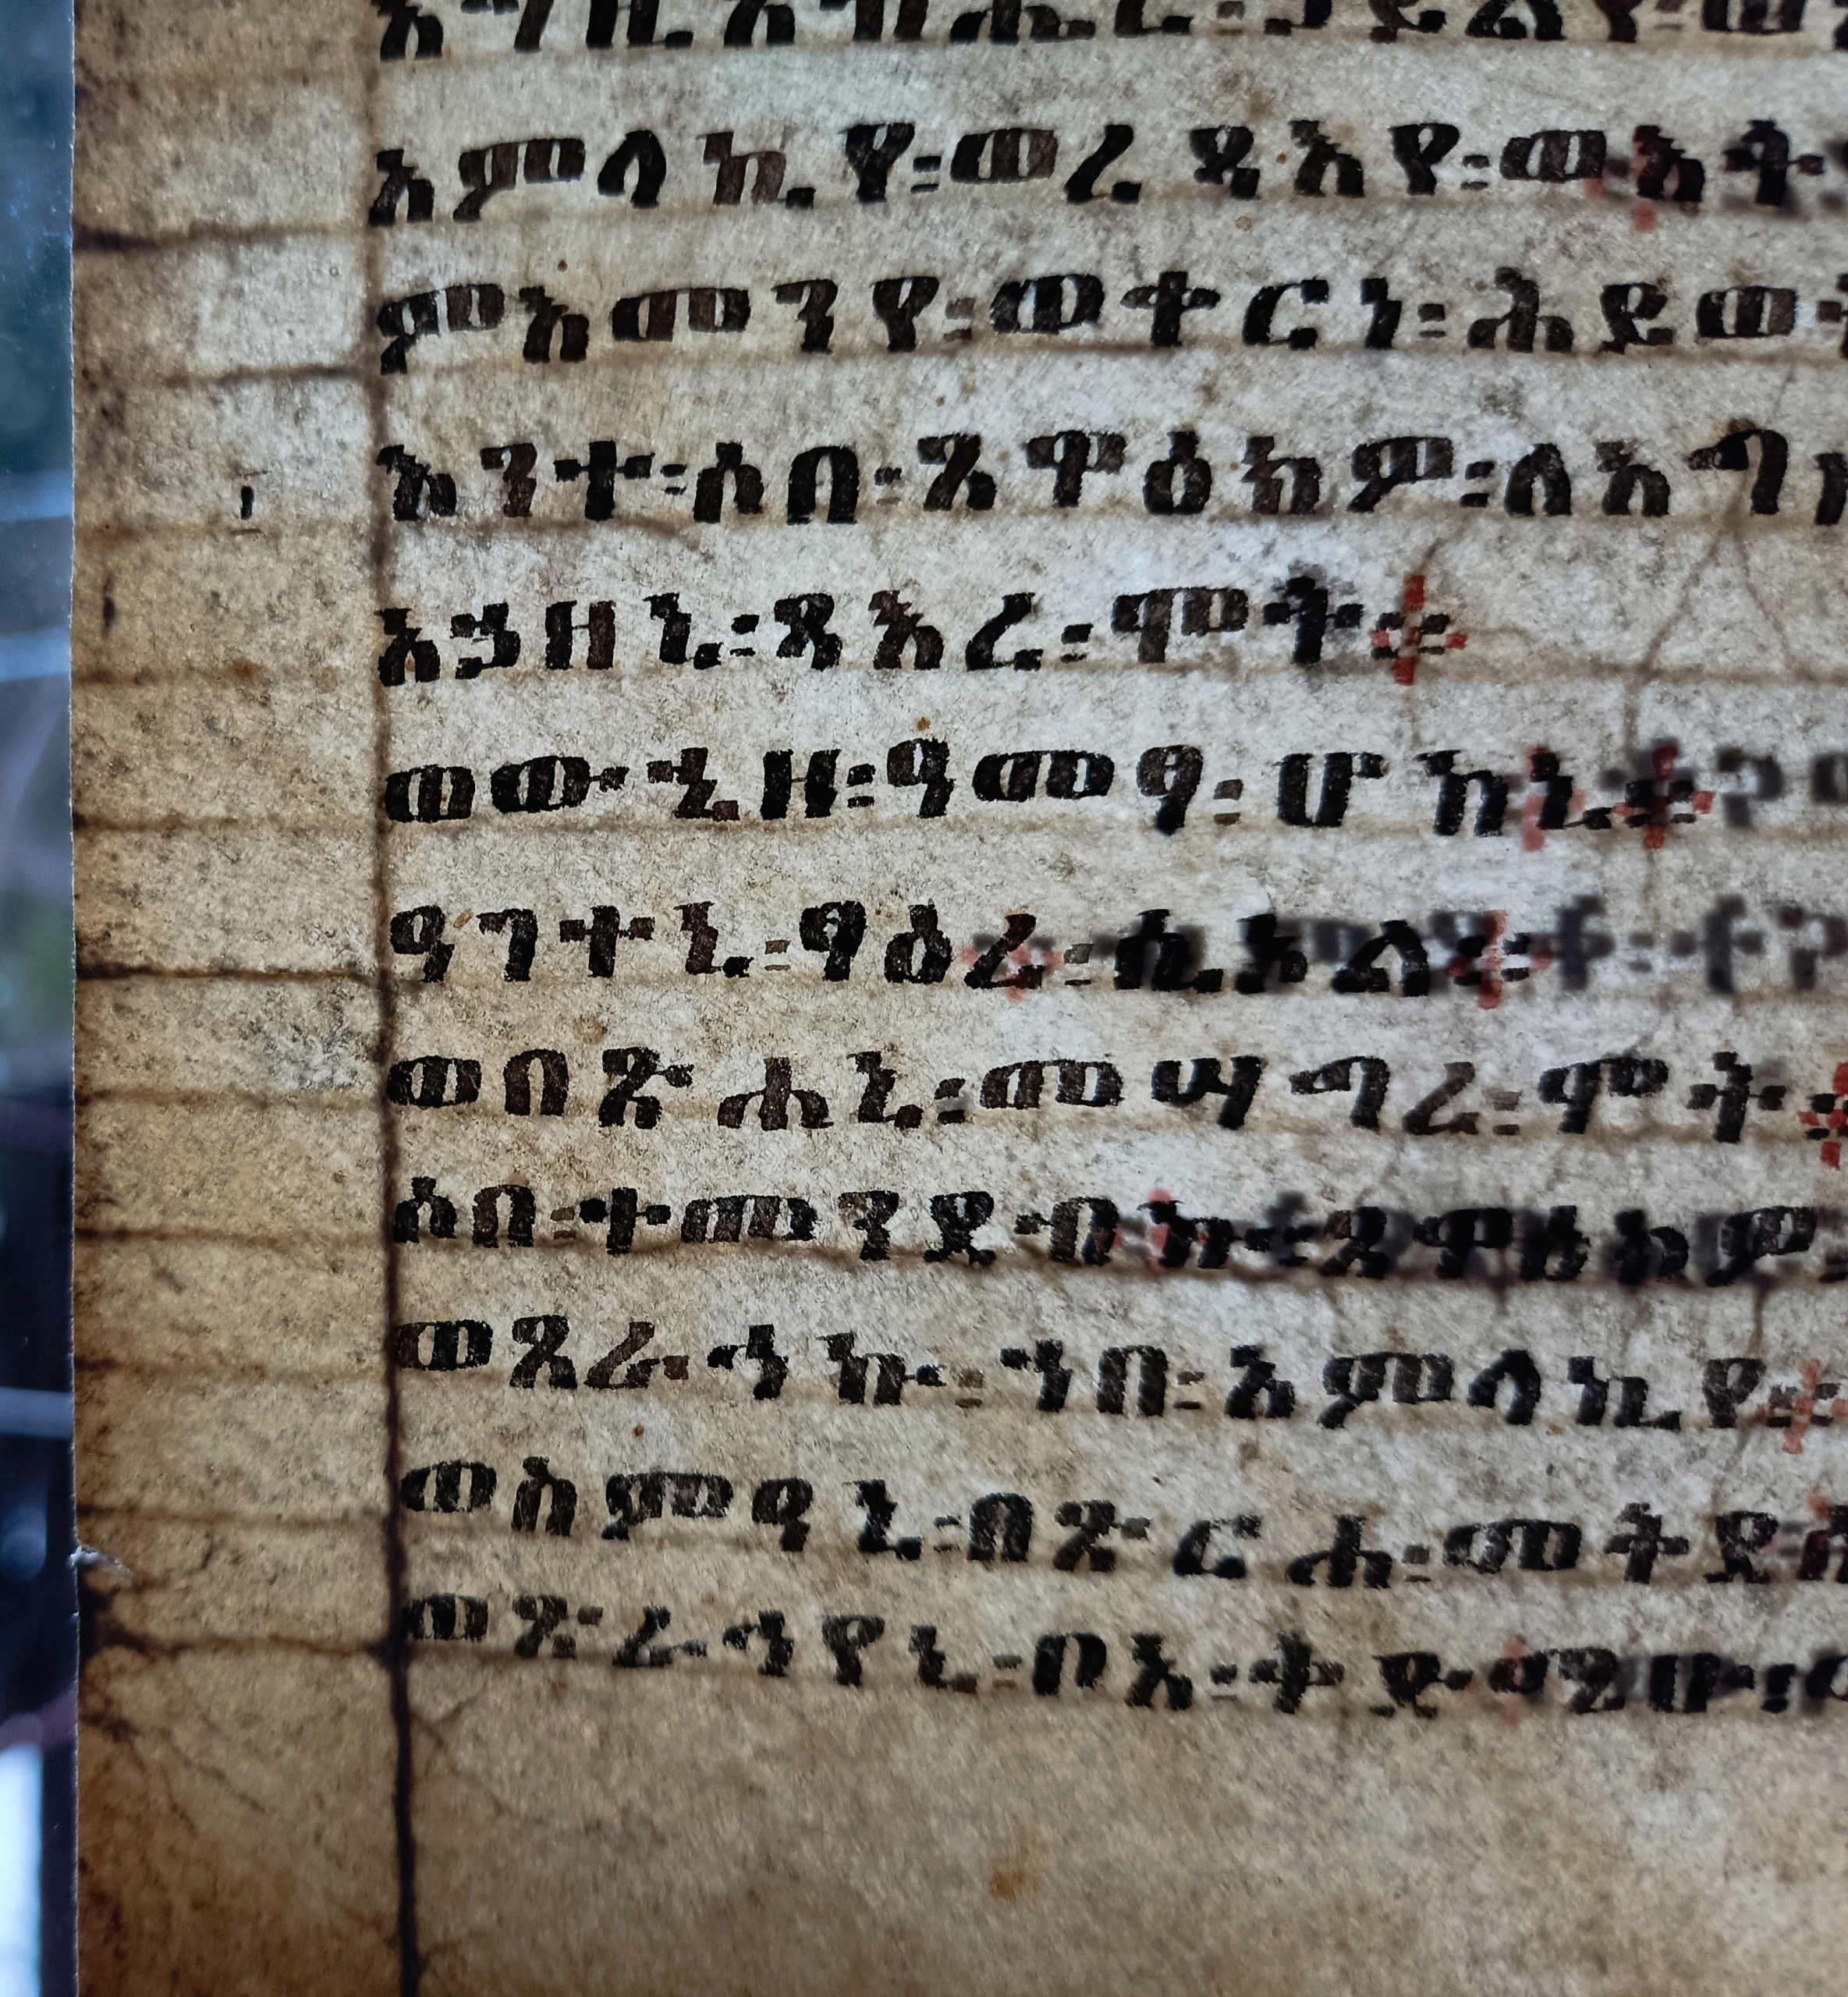 እግዚአብሔር፡ኃይልየ፡
አምላኪየ፡ወረዳእየ፡ወእት
ምእመንየ፡ወቀርነ፡ሕይወ
እንተ፡ሶበ፡ጸዋዕክዎ፡ለእግ
አኃዘኒ፡ጻእረ፡ሞት፨
ወውኂዘ፡ዓመፃ፡ሆከኒ፨
ዓገተኒ፡ፃዕረ፡ሲኦል፨
ወበጽሐኒ፡መሣግረ፡ሞት፨
ሶበ፡ተመንደብኩ፡ጸዋዕክዎ፡
ወጸራኅኩ፡ኀበ፡አምላኪየ፨
ወስምዓኒ፡በጽርሐ፡መቅደ
ወጽራኅየኒ፡ቦአ፡ቅድሜሁ፡